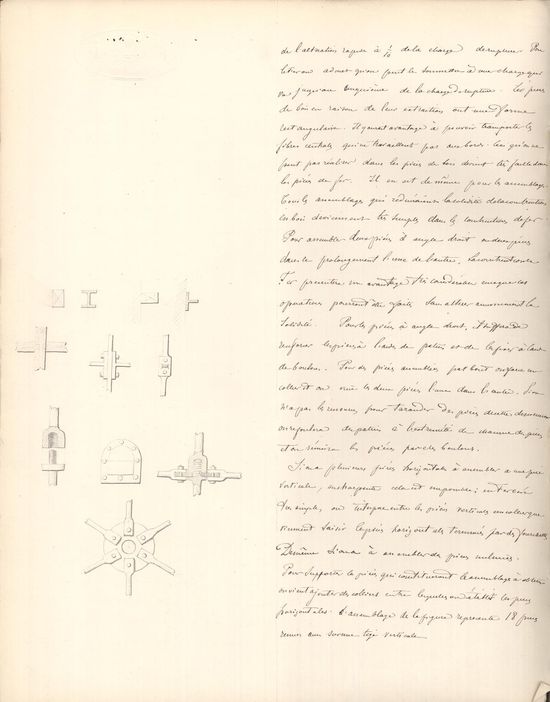 de l'altération rapide à 1/10 de la charge de rupture. Pour
le fer on admet qu'on peut le soumettre à une charge qui
va jusqu'au cinquième de la charge de rupture. Les pièces
de bois en raison de leur extraction ont une forme
rectangulaire. Il y aurait avantage à pouvoir transporter les
fibres centrales qui ne travaillent pas aux bords. Ce qu'on ne
peut pas réaliser dans les pièces de bois devient très facile dans
les pièces de fer. Il en est de même pour les assemblages.
Tous les assemblages qui réduisaient la solidité de la construction
en bois deviennent très simples dans les constructions de fer.
Pour assembler deux pièces à angle droit ou deux pièces
dans le prolongement l'une de l'autre, la construction en
Fer présentera un avantage très considérable
opérations pourront être faites sans altérer aucunement la
solidité. Pour les pièces à angle droit, il suffira de
renforcer les pièces à l'aide de patins et de les fixer à l'aide
de boulons. Pour des pièces assemblées bout à bout on
collet et on visse les deux pièces l'une dans l'autre. Si on
n'a pas les ressources pour tarauder des pièces
on refoulera des patins à l'extrémité de chacune des pièces
et on réunira les pièces par des boulons.
Si on a plusieurs pièces horizontales à assembler à une pièce
verticale, en charpente cela est impossible; en Fer rien
de plus simple, on interpose entre les pièces verticales un collier que
viennent saisir les pièces horizontales terminées par des fourchettes.
De même si on a à assembler des pièces inclinées.
Pour supporter les pièces qui constitueront l'assemblage
on vient ajouter des colliers entre lesquels on établit les pièces
horizontales. L'assemblage de la figure représente 18 pièces
réunies sur une tige verticale.